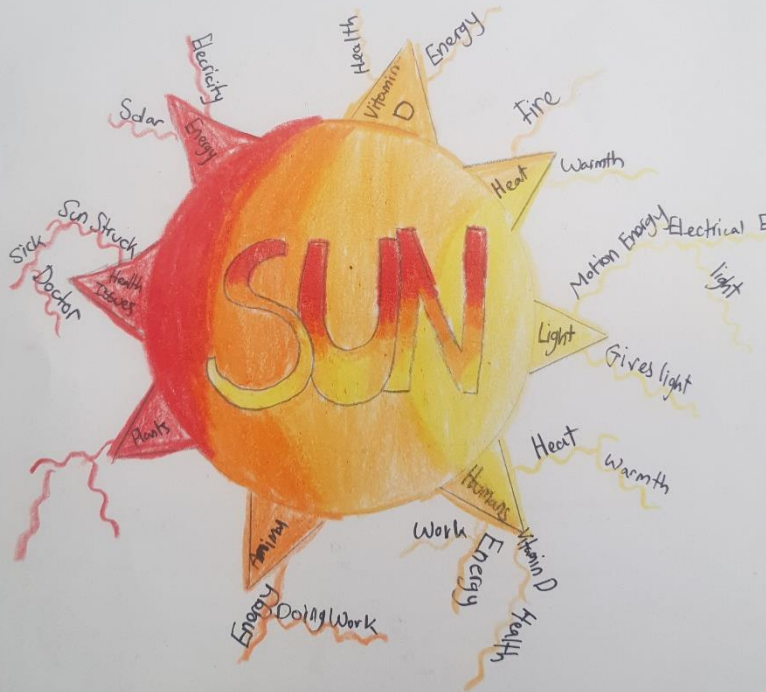 SUN
Vitamin
D
Health
Energy
Heat
Fire
Warmth
Light
Motion Energy
Electrical E
light
Gives light
Humans
Heat
Warmth
Vitamin D
Health
Energy
Work
Animal
Energy
Doing Work
Plants
Health
Issues
Sun Struck
Sick
Doctor
Energy
Solar
Elecricity